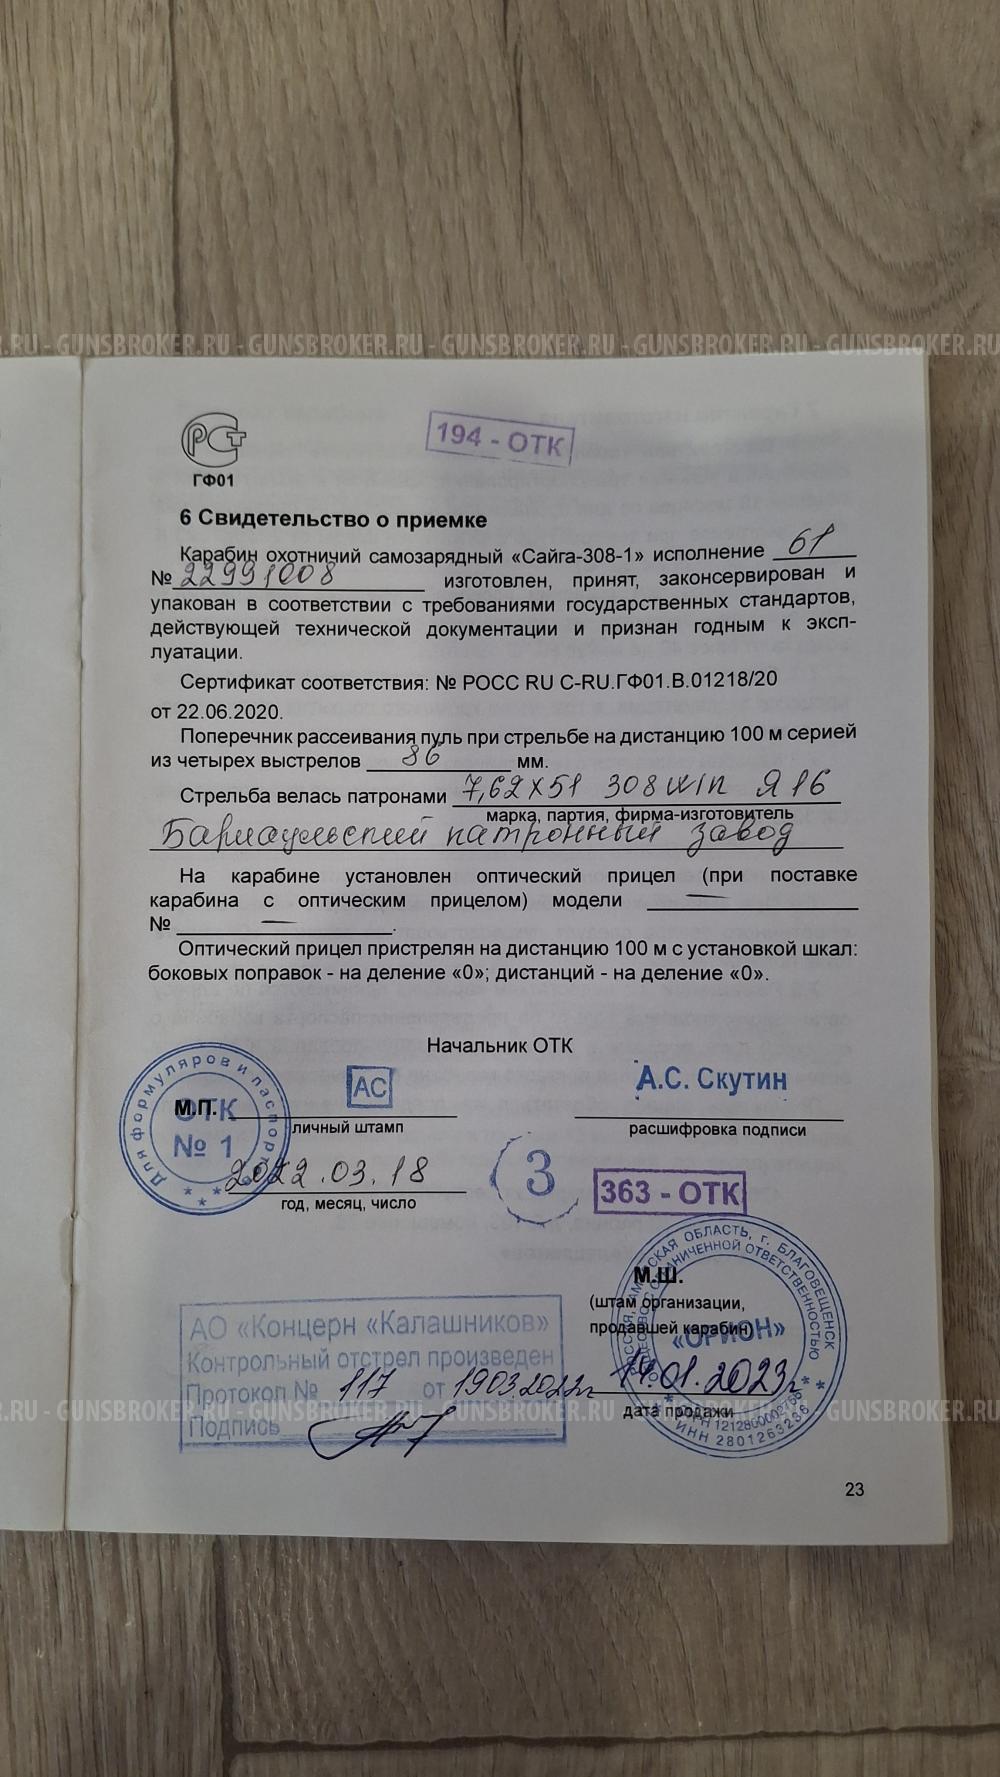 GUNSBROKER.RU - GUNSBROKER.RU - GUNSBROKER.RU - GUNSBROKER.RU - GUNSBROKER.RU
РСТ
ГФ01
194 - ОТК
6 Свидетельство о приемке
Карабин охотничий самозарядный «Сайга-308-1» исполнение 61
№ 22991008 изготовлен, принят, законсервирован и
упакован в соответствии с требованиями государственных стандартов,
действующей технической документации и признан годным к эксп-
луатации.
Сертификат соответствия: № РОСС RU С-RU.ГФ01.В.01218/20
от 22.06.2020.
Поперечник рассеивания пуль при стрельбе на дистанцию 100 м серией
из четырех выстрелов 86 мм.
Стрельба велась патронами 7,62х51 308 WIN Я 16
марка, партия, фирма-изготовитель
Барнаульский патронный завод
На карабине установлен оптический прицел (при поставке
карабина с оптическим прицелом) модели —
№ —.
Оптический прицел пристрелян на дистанцию 100 м с установкой шкал:
боковых поправок - на деление «0»; дистанций - на деление «0».
Начальник ОТК
Для формуляров и паспортов
ОТК
№ 1
М.П.
АС
А.С. Скутин
личный штамп
расшифровка подписи
2022.03.18
год, месяц, число
3
363 - ОТК
М.Ш.
(штам организации,
продавшей карабин)
РОССИЯ, АМУРСКАЯ ОБЛАСТЬ, г. БЛАГОВЕЩЕНСК
ОБЩЕСТВО С ОГРАНИЧЕННОЙ ОТВЕТСТВЕННОСТЬЮ
«ОРИОН»
ИНН 2801263236
14.01.2023г
дата продажи
АО «Концерн «Калашников»
Контрольный отстрел произведен
Протокол № 117 от 19.03.2022г
Подпись
GUNSBROKER.RU - GUNSBROKER.RU - GUNSBROKER.RU - GUNSBROKER.RU - GUNSBROKER.RU
23